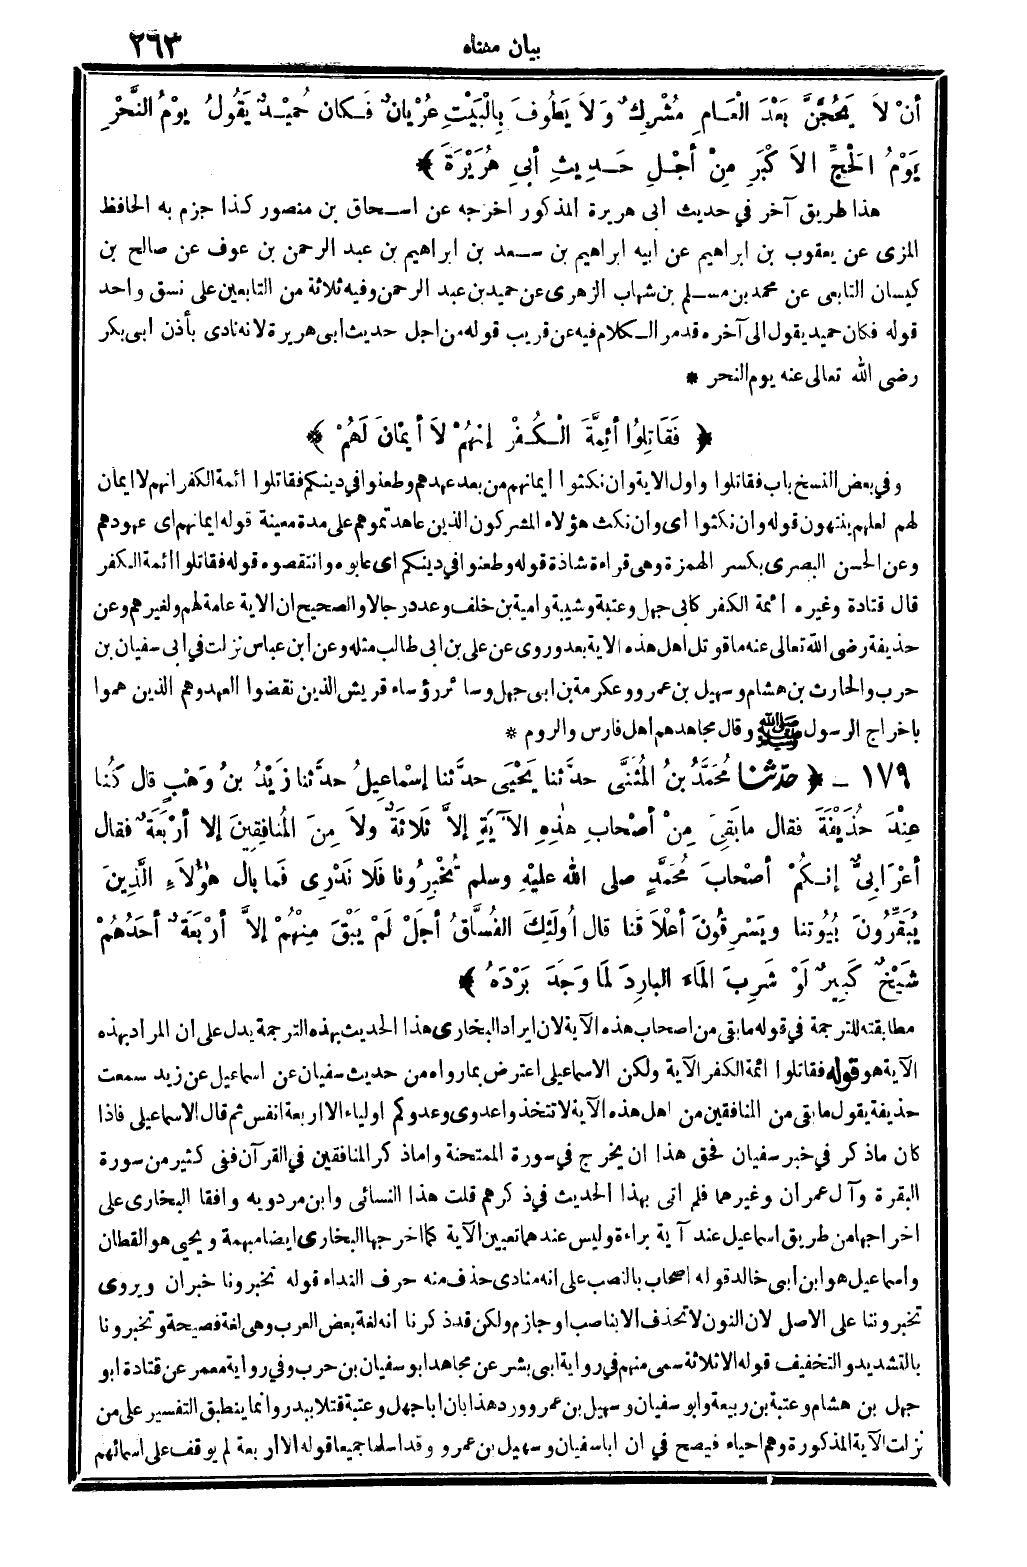 بيان معناه ٢٦٣
أنْ لاَ يَحُجَّنَّ بَعْدَ الْعَامِ مُشْرِكٌ وَلاَ يَطُوفَ بِالْبَيْتِ عُرْيانٌ فَكان حُمَيْدٌ يَقُولُ يوْمُ النَّحْرِ
يَوْمُ الْحَجِّ الأَكْبَرِ مِنْ أجْلِ حَدِيثِ أبي هُرَيْرَةَ ﴾
هذا طريق آخر في حديث ابى هريرة المذكور اخرجه عن اسحاق بن منصور كذا جزم به الحافظ
المزى عن يعقوب بن ابراهيم عن ابيه ابراهيم بن سعد بن ابراهيم بن عبد الرحمن بن عوف عن صالح بن
كيسان التابعى عن محمد بن مسلم بن شهاب الزهرى عن حميد بن عبد الرحمن وفيه ثلاثة من التابعين على نسق واحد
قوله فكان حميد يقول الى آخره قد مر الكلام فيه عن قريب قوله من اجل حديث ابى هريرة لانه نادى بأذن ابى بكر
رضى الله تعالى عنه يوم النحر *
﴿ فَقَاتِلُوا أئِمَّةَ الْكُفْرِ إنهُمْ لاَ أيْمَانَ لَهُمْ ﴾
وفي بعض النسخ باب فقاتلوا واول الاية وان نكثوا ايمانهم من بعد عهدهم وطعنوا في دينكم فقاتلوا ائمة الكفر انهم لا ايمان
لهم لعلهم ينتهون قوله وان نكثوا اى وان نكث هؤلاء المشركون الذين عاهدتموهم على مدة معينة قوله ايمانهم اى عهودهم
وعن الحسن البصرى بكسر الهمزة وهى قراءة شاذة قوله وطعنوا في دينكم اى عابوه وانتقصوه قوله فقاتلوا ائمة الكفر
قال قتادة وغيره ائمة الكفر كابى جهل وعتبة وشيبة وامية بن خلف وعدد رجالا والصحيح ان الاية عامة لهم ولغيرهم وعن
حذيفة رضى الله تعالى عنه ما قوتل اهل هذه الاية بعد وروى عن على بن ابى طالب مثله وعن ابن عباس نزلت في ابى سفيان بن
حرب والحارث بن هشام وسهيل بن عمرو وعكرمة بن ابى جهل وسائر رؤساء قريش الذين نقضوا العهد وهم الذين هموا
باخراج الرسول ﷺ وقال مجاهد هم اهل فارس والروم *
١٧٩ ـ ﴿ حدثنا مُحَمَّدُ بنُ المُثَنَّى حدَّثنا يَحْيَى حدَّثنا إسْماعِيلُ حدَّثنا زَيْدُ بنُ وَهْبٍ قال كُنَّا
عِنْدَ حُذَيْفَةَ فقال مابَقِيَ مِنْ أصْحابِ هذِهِ الآيَةِ إلاَّ ثَلاثَةٌ ولا مِنَ المُنافِقِينَ إلا أرْبَعَةٌ فقال
أعْرَابِيٌّ إنكُمْ أصْحابَ مُحَمَّدٍ صلى الله عليْهِ وسلم تُخْبِرُونا فَلا نَدْرِى فَما بالُ هٰؤُلاَءِ الَّذِينَ
يُبَقِّرُونَ بُيُوتَنا ويَسْرِقُونَ أعْلاَقَنا قال أُولَئِكَ الفُسَّاقُ أجَلْ لَمْ يَبْقَ مِنْهُمْ إلاَّ أرْبَعَةٌ أحَدُهُمْ
شَيْخٌ كَبِيرٌ لَوْ شَرِبَ المَاءَ البارِدَ لَمَا وَجَدَ بَرْدَهُ ﴾
مطابقته للترجمة في قوله مابقى من اصحاب هذه الآية لان ايراد البخارى هذا الحديث بهذه الترجمة يدل على ان المراد بهذه
الآية هو قوله فقاتلوا ائمة الكفر الآية ولكن الاسماعيلى اعترض بما رواه من حديث سفيان عن اسماعيل عن زيد سمعت
حذيفة يقول مابقى من المنافقين من اهل هذه الآية لا تتخذوا عدوى وعدوكم اولياء الا اربعة انفس ثم قال الاسماعيلى فاذا
كان ماذكر في خبر سفيان فحق هذا ان يخرج في سورة الممتحنة واما ذكر المنافقين في القرآن ففى كثير من سورة
البقرة وآل عمران وغيرهما فلم اتى بهذا الحديث في ذكرهم قلت هذا النسائى وابن مردويه وافقا البخارى على
اخراجها من طريق اسماعيل عند آية براءة وليس عندهما تعيين الآية كما اخرجها البخارى ايضا مبهمة ويحيى هو القطان
واسماعيل هو ابن أبى خالد قوله اصحاب بالنصب على انه منادى حذف منه حرف النداء قوله تخبرونا خبر ان ويروى
تخبروننا على الاصل لان النون لا تحذف الا بناصب او جازم ولكن قد ذكرنا أنه لغة بعض العرب وهى لغة فصيحة وتخبرونا
بالتشديد والتخفيف قوله الا ثلاثة سمى منهم في رواية ابى بشر عن مجاهد ابو سفيان بن حرب وفي رواية معمر عن قتادة ابو
جهل بن هشام وعتبة بن ربيعة وابو سفيان وسهيل بن عمرو ورد هذا بان ابا جهل وعتبة قتلا ببدر وانما ينطبق التفسير على من
نزلت الآية المذكورة وهم احياء فيصح في ان ابا سفيان وسهيل بن عمرو وقد اسلما جميعا قوله الا اربعة لم يوقف على اسمائهم